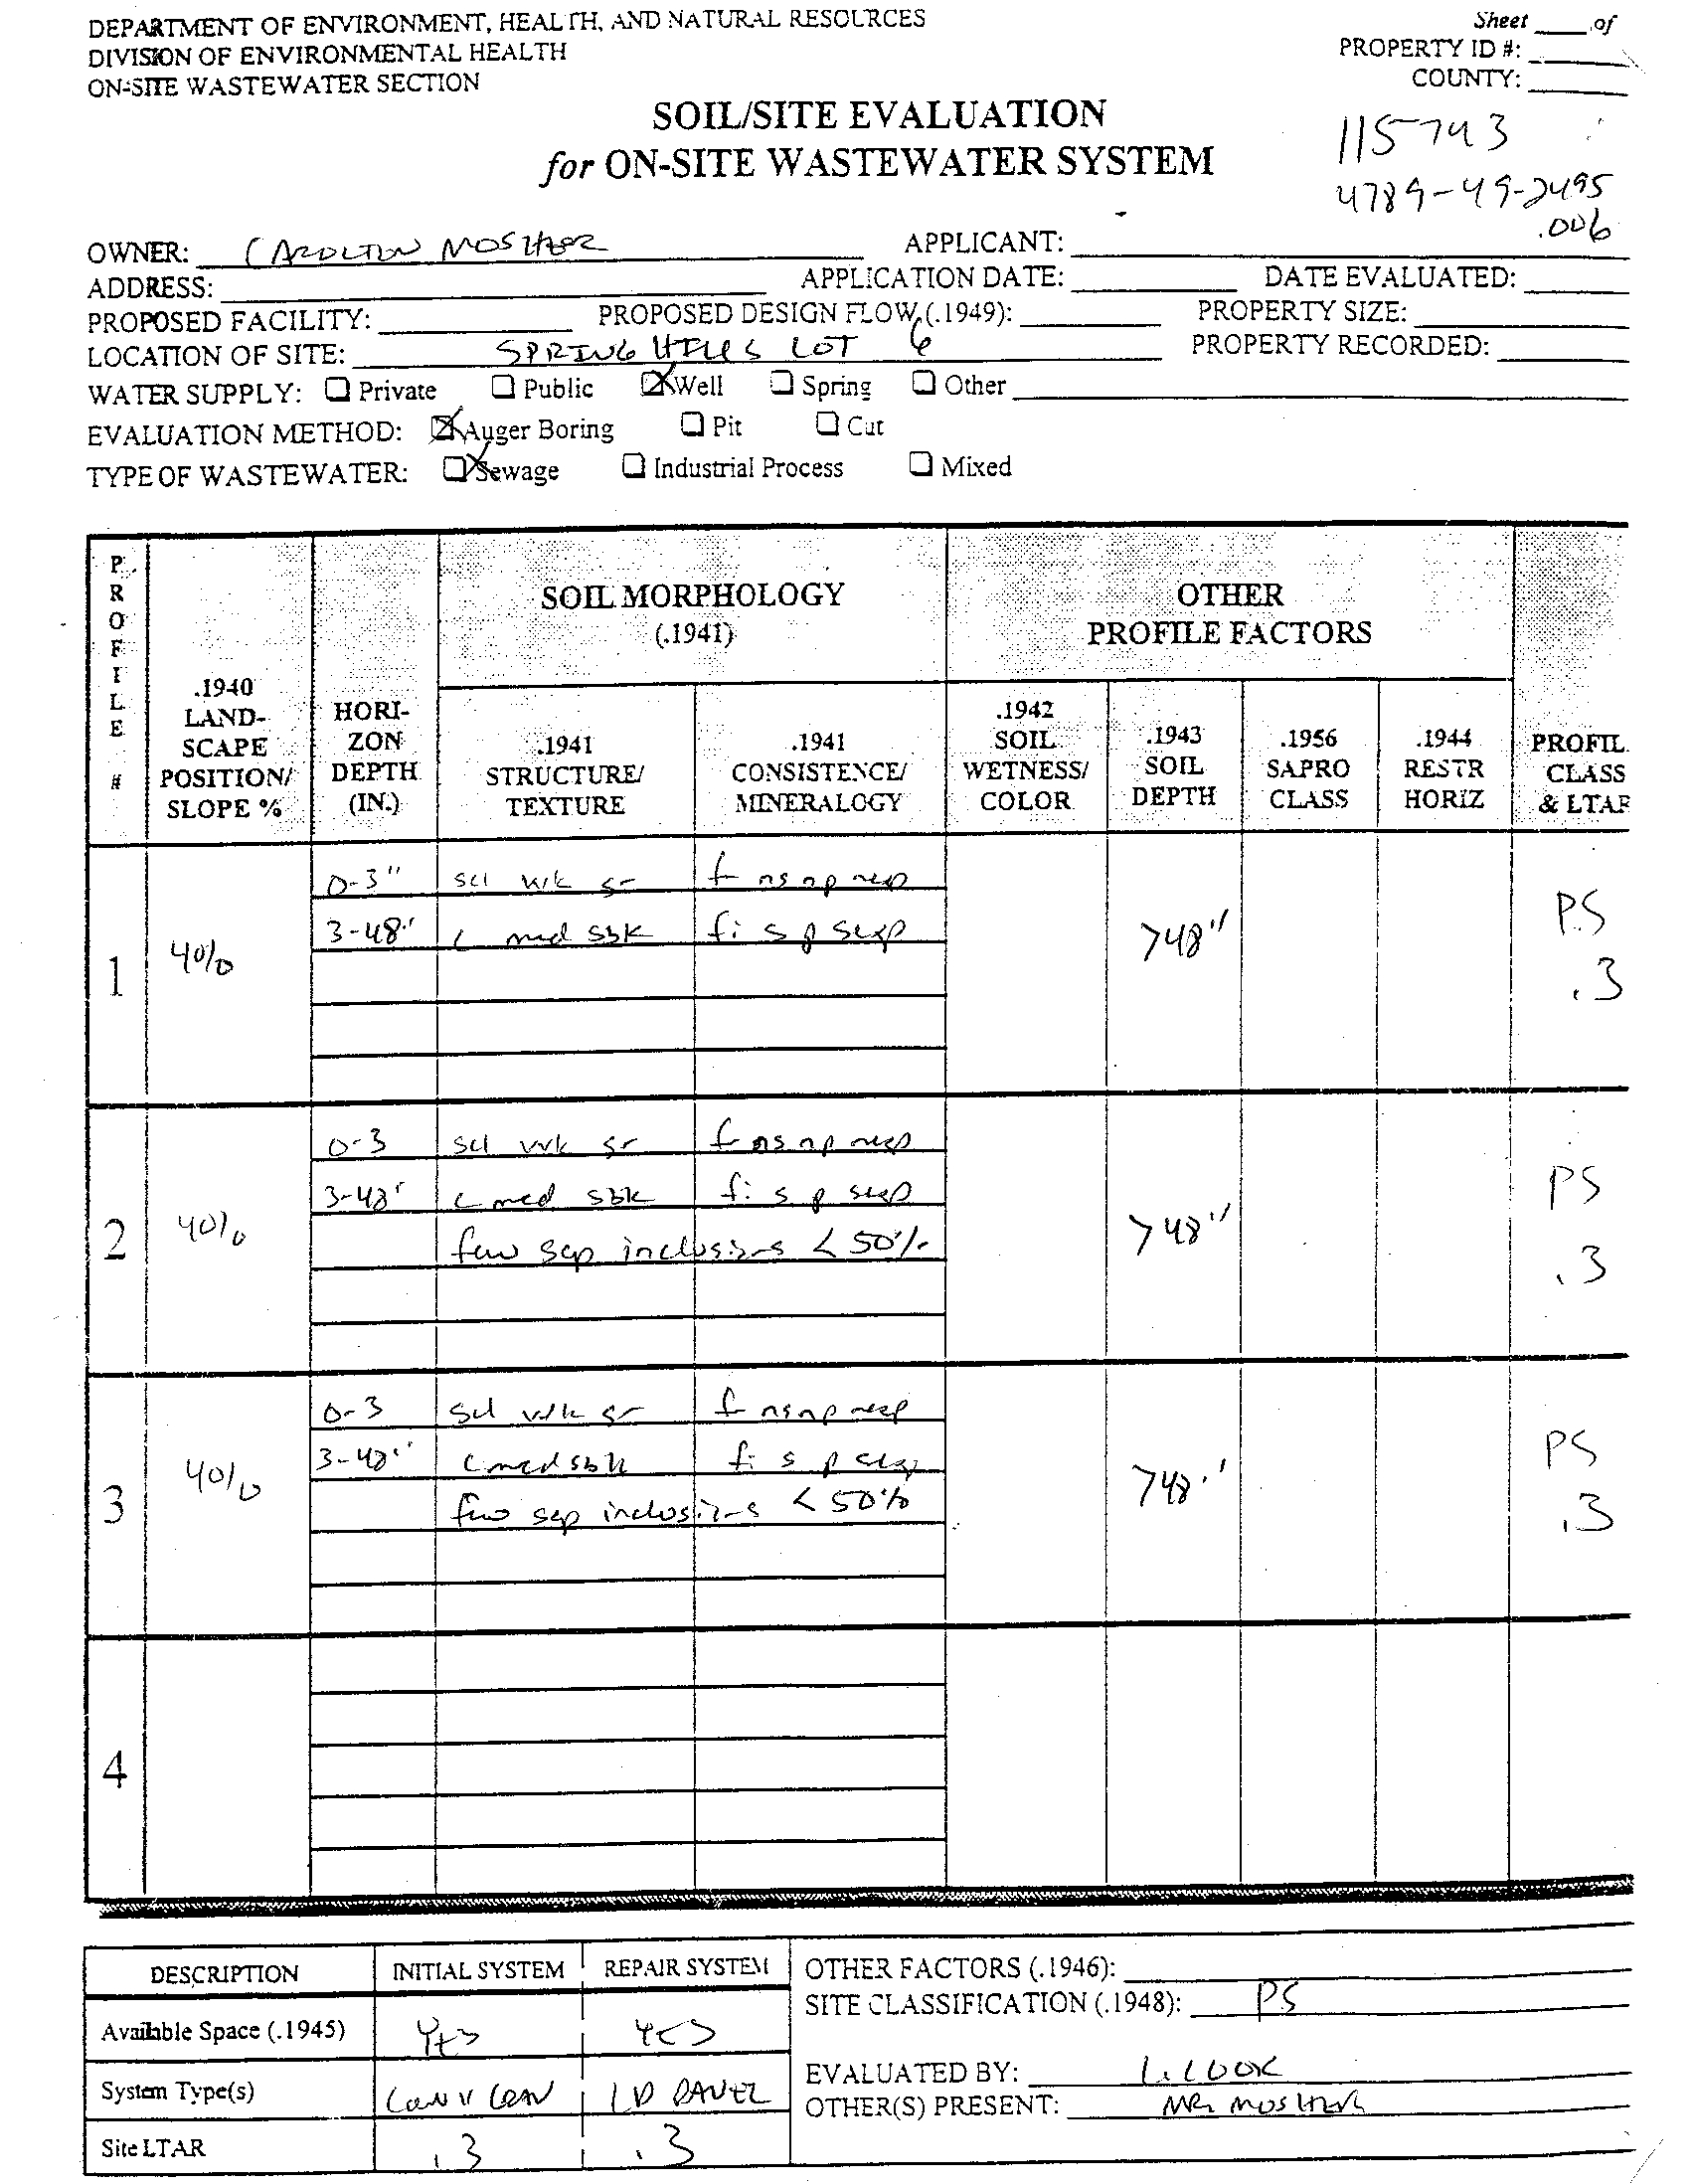 DEPARTMENT OF ENVIRONMENT, HEALTH, AND NATURAL RESOURCES
DIVISION OF ENVIRONMENTAL HEALTH
ON-SITE WASTEWATER SECTION
Sheet ____ of
PROPERTY ID #:
COUNTY:
SOIL/SITE EVALUATION
for ON-SITE WASTEWATER SYSTEM
115743
4789-49-2495
.006
OWNER: CAROLTON MOSHER APPLICANT:
ADDRESS: APPLICATION DATE: DATE EVALUATED:
PROPOSED FACILITY: PROPOSED DESIGN FLOW (.1949): PROPERTY SIZE:
LOCATION OF SITE: SPRING HILLS LOT 6 PROPERTY RECORDED:
WATER SUPPLY: ☐ Private ☐ Public ☒ Well ☐ Spring ☐ Other
EVALUATION METHOD: ☒ Auger Boring ☐ Pit ☐ Cut
TYPE OF WASTEWATER: ☒ Sewage ☐ Industrial Process ☐ Mixed
PROFILE #
.1940 LAND-SCAPE POSITION/ SLOPE %
HORI-ZON DEPTH (IN.)
SOIL MORPHOLOGY
(.1941)
.1941 STRUCTURE/ TEXTURE
.1941 CONSISTENCE/ MINERALOGY
OTHER
PROFILE FACTORS
.1942 SOIL WETNESS/ COLOR
.1943 SOIL DEPTH
.1956 SAPRO CLASS
.1944 RESTR HORIZ
PROFIL CLASS & LTAR
1 40% >48" PS .3
0-3" scl wk gr f ns np nexp
3-48" c med sbk fi s p sexp
2 40% >48" PS .3
0-3 scl wk gr f ns np nexp
3-48" c med sbk fi s p sexp
few sap inclusions < 50%
3 40% >48" PS .3
0-3 scl wk gr f ns np nexp
3-48" c med sbk fi s p sexp
few sap inclusions < 50%
4
DESCRIPTION INITIAL SYSTEM REPAIR SYSTEM
Available Space (.1945) Yes Yes
System Type(s) CONV
Site LTAR .3 .3
OTHER FACTORS (.1946):
SITE CLASSIFICATION (.1948): PS
EVALUATED BY: L. COOK
OTHER(S) PRESENT: MR. MOSHER